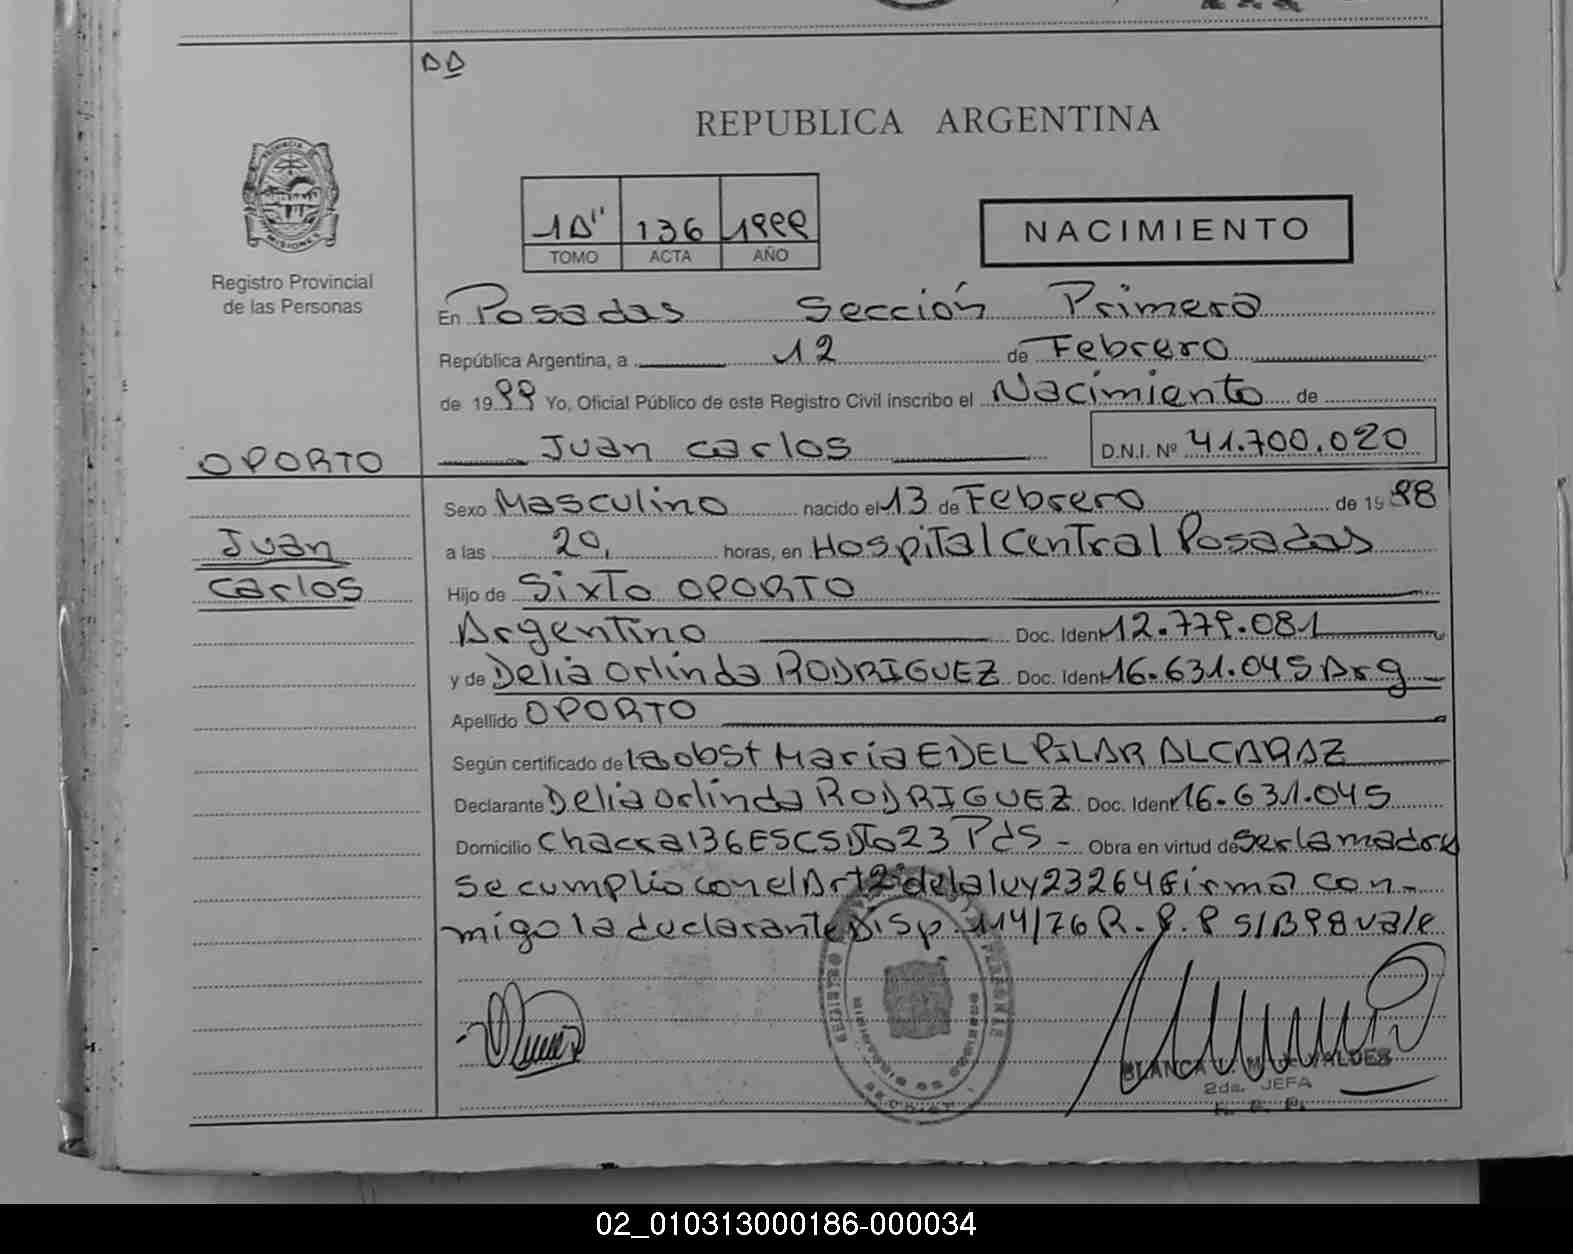 DD
REPUBLICA ARGENTINA
PROVINCIA
MISIONES
Registro Provincial
de las Personas
1D" 136 1999
TOMO ACTA AÑO
NACIMIENTO
En Posadas Sección Primera
República Argentina, a 12 de Febrero
de 1999 Yo, Oficial Público de este Registro Civil inscribo el Nacimiento de
Juan Carlos D.N.I. Nº 41.700.020
OPORTO
Juan
Carlos
Sexo Masculino nacido el 13 de Febrero de 1998
a las 20, horas, en Hospital Central Posadas
Hijo de Sixto OPORTO
Argentino Doc. Ident 12.779.081
y de Delia Orlinda RODRIGUEZ Doc. Ident 16.631.045 Arg
Apellido OPORTO
Según certificado de la obst Maria E DEL PILAR ALCARAZ
Declarante Delia Orlinda RODRIGUEZ Doc. Ident 16.631.045
Domicilio Chacra 136 ESC5 Dto 23 Pds - Obra en virtud de ser la madre
se cumplio con el Art 2º de la ley 23264 Firma con-
migo la declarante Disp. 114/76 R.P.P S/B 998 vale
BLANCA VALDES
2da. JEFA
R. P. P.
02_010313000186-000034